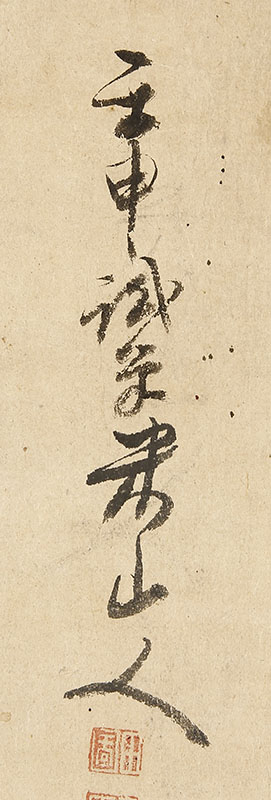 壬申試筆米山人